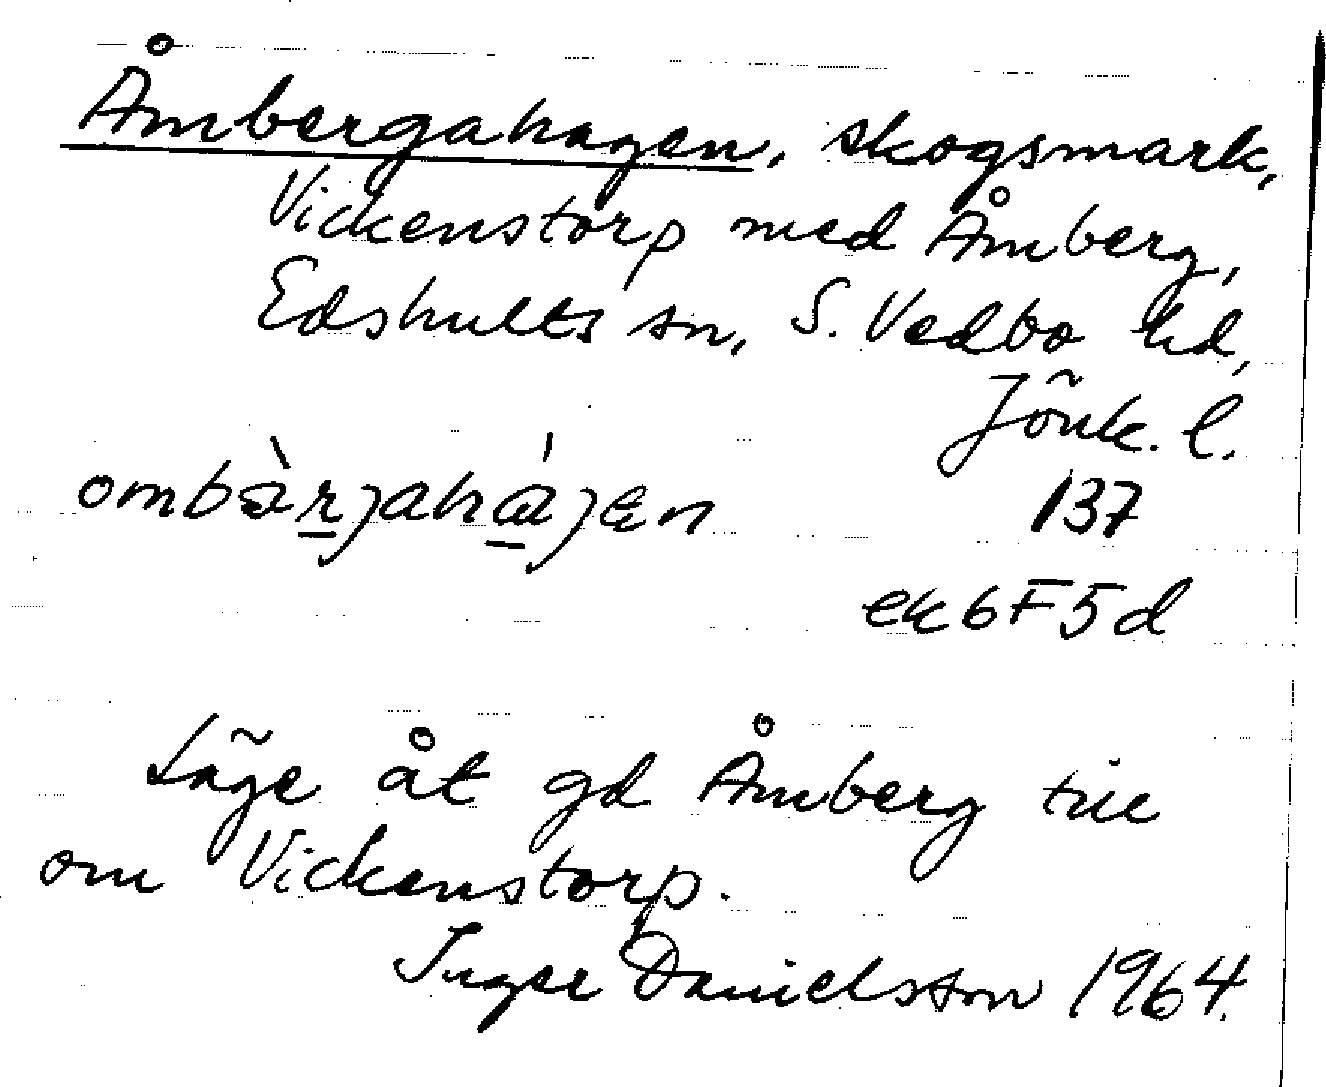 Åmbergahagen, skogsmark,
Vickenstorp med Åmberg,
Edshults sn, S. Vedbo hd,
Jönk. l.
137
ek6F5d
Läge åt gd Åmberg till
om Vickenstorp.
Inger Danielsson 1964.